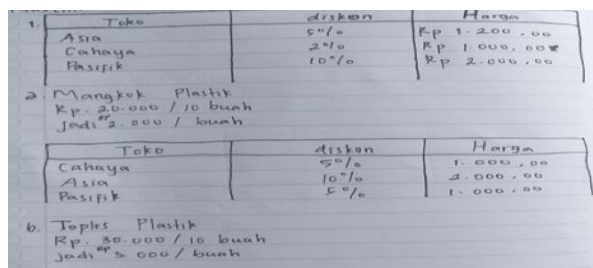 1. Toko diskon Harga
Asia 5% Rp 1.200,00
Cahaya 2% Rp 1.000,00
Pasifik 10% Rp 2.000,00
a. Mangkok Plastik
Rp. 20.000 / 10 buah
Jadi Rp 2.000 / buah
Toko diskon Harga
Cahaya 5% 1.000,00
Asia 10% 2.000,00
Pasipik 5% 1.000,00
b. Toples Plastik
Rp. 30.000 / 10 buah
Jadi Rp 3.000 / buah